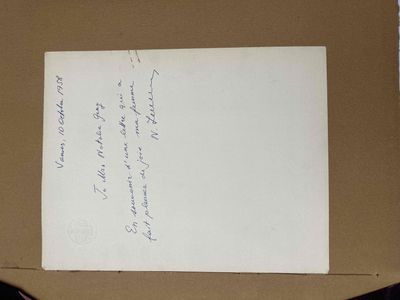 Vanves, 10 Octobre 1958
To Mrs Natalie Gray
En souvenir d'une lettre qui a
fait pleurer de joie ma femme
N.